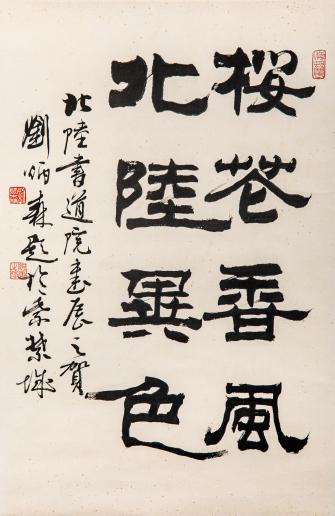 桜花香風
北陸異色
北陸書道院書展之賀
劉炳森題於紫禁城